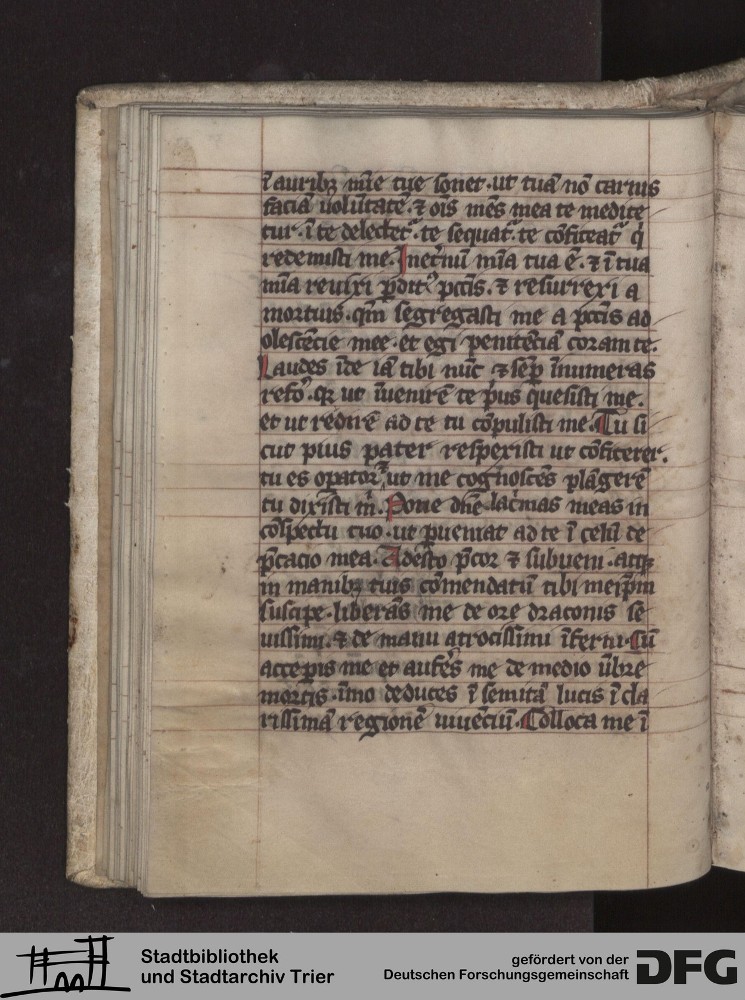 ī auribꝫ mīe tue sonet · ut tuā nō carnis
faciā volūtatē · ⁊ oīs mēs mea te medite
tur · ī te delectet᷑ · te sequat᷑ · te cōfiteat᷑ q̇
redemisti me · In et̓nū mīa tua ē · ⁊ ī tua
mīa revixi p̄dit᷒ pctīs · ⁊ resurrexi a
mortuis · qm̄ segregasti me a pctīs ad
olescētie mee · et egi penitētiā coram te ·
Laudes īde iā tibi nūc ⁊ semꝑ īnumeras
refō · qꝛ ut īvenirē te pͥus quesisti me ·
et ut redirē ad te tu cōpulisti me · Tu si
cut pius pater respexisti ut cōfiterer ·
tu es opatᵒr ut me cognoscēs plāgerē
tu dixisti m̄ · Pone dn̄e lac̓mas meas in
cōspectu tuo · ut ꝑveniat ad te ī celū te
p̄catio mea · Adesto p̄cor ⁊ subveni · atqꝫ
in manibꝫ tuis cōmendatū tibi meip̄m
suscipe · liberās me de ore draconis se
vissimi · ⁊ de manu atrocissimi īferni · Cū
acceꝑis me et aufēs me de medio ūbre
mortis · īmo deduces ī semitā lucis ī cla
rissimā regionē vivēciū · Colloca me ī
Stadtbibliothek
und Stadtarchiv Trier
gefördert von der
Deutschen Forschungsgemeinschaft
DFG